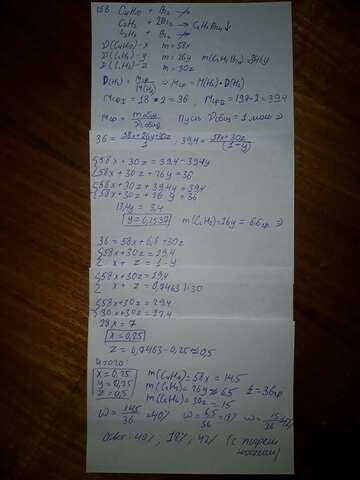 C₄H₁₀ + Br₂ ↛
C₂H₂ + 2Br₂ → C₂H₂Br₄↓
C₂H₆ + Br₂ ↛
D(C₄H₁₀) - x m = 58x
D(C₂H₂) - y m = 26y
D(C₂H₆) - z m = 30z
D(H₂) = Mср/M(H₂) ⇒ Mср = M(H₂)·D(H₂)
Mср1 = 18·2 = 36, Mср2 = 19,7·2 = 39,4
Mср = mобщ/νобщ Пусть νобщ = 1 моль ⇒
36 = (58x+26y+30z)/1, 39,4 = (58x+30z)/(1-y)
{58x + 30z = 39,4 - 39,4y
{58x + 30z + 26y = 36
{58x + 30z + 39,4y = 39,4
{58x + 30z + 26y = 36
13,4y = 3,4
y = 0,2537 m(C₂H₂) = 26y = 6,6гр ⇒
36 = 58x + 6,6 + 30z
{58x + 30z = 29,4
{x + z = 1 - y
{58x + 30z = 29,4
{x + z = 0,7463 |·30
{58x + 30z = 29,4
{30x + 30z = 22,4
28x = 7
x = 0,25
z = 0,7463 - 0,25 ≈ 0,5
Итого:
x = 0,25 m(C₄H₁₀) = 58x = 14,5
y = 0,25 m(C₂H₂) = 26y ≈ 6,5 Σ = 36гр
z = 0,5 m(C₂H₆) = 30z = 15
W = 14,5/36 = 40% W = 6,5/36 = 18% W = 15/36 = 42%
Ответ: 40%, 18%, 42%